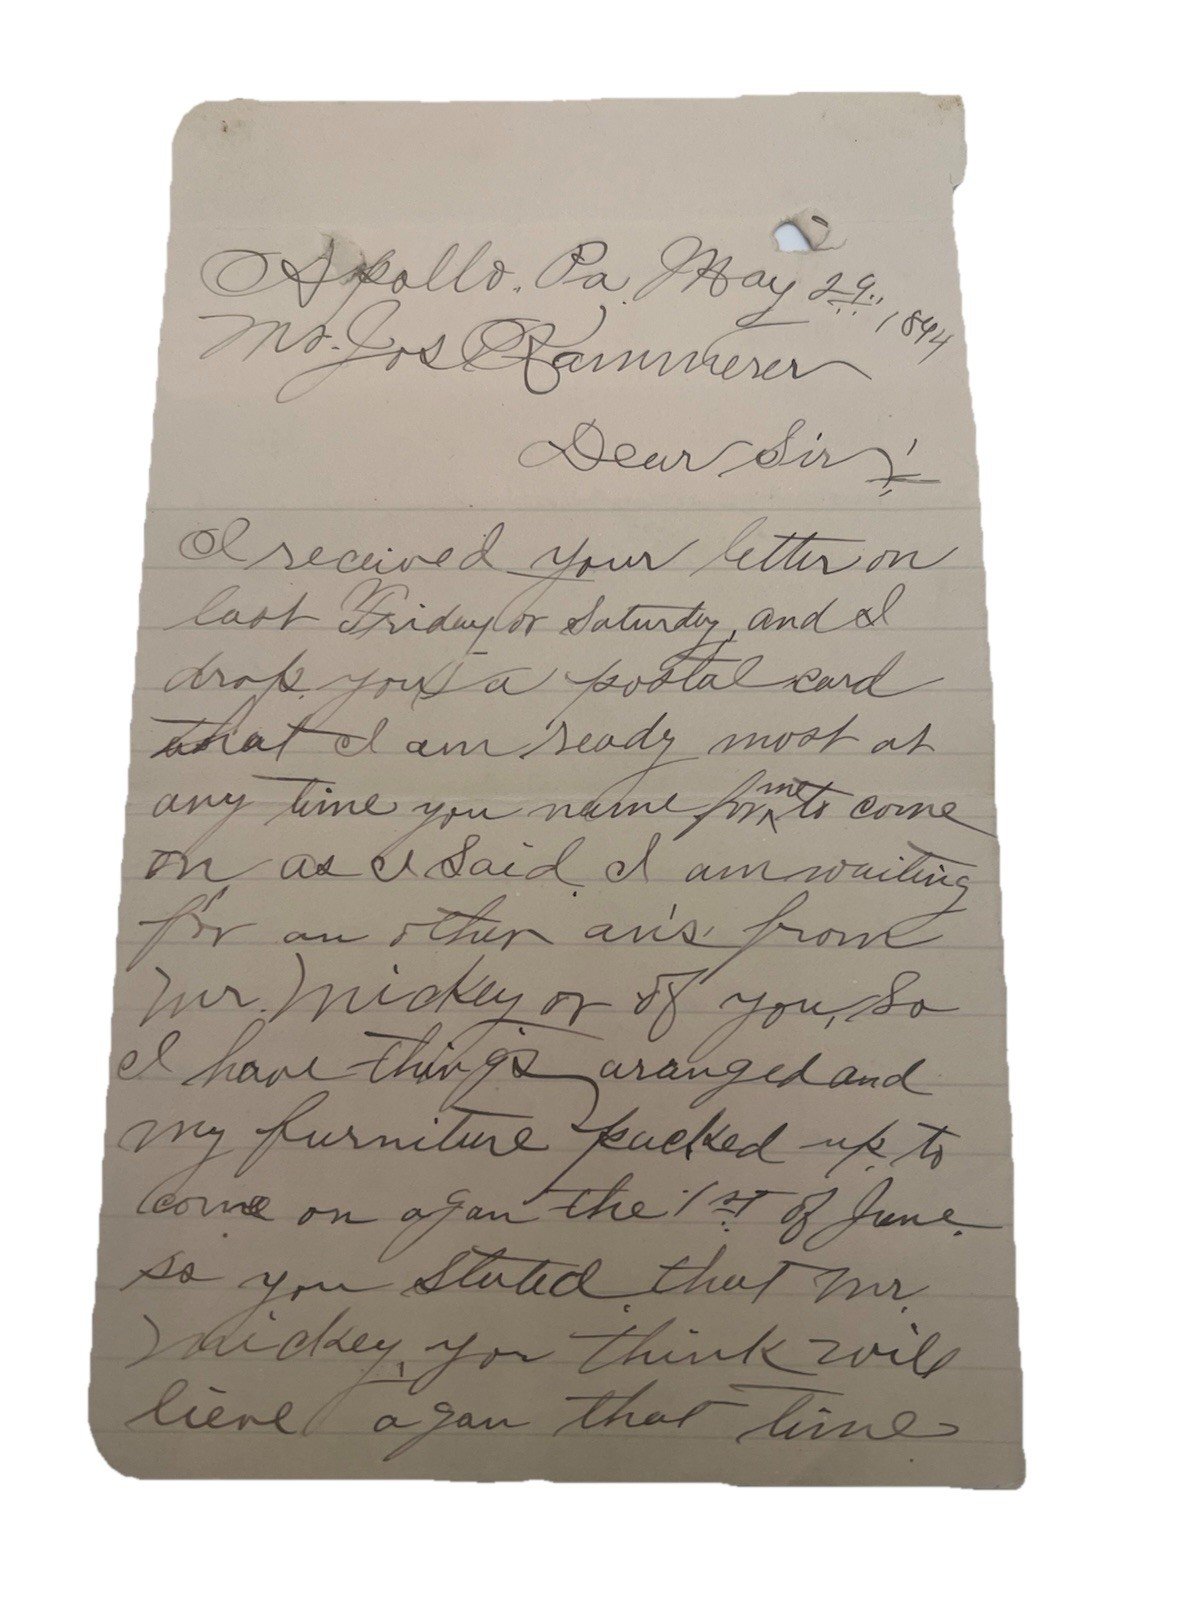 Apollo. Pa. May 29., 1894
Mr. Jos Kammerer
Dear Sir;
I received your letter on
last Friday or Saturday, and I
drop you a postal card
that I am ready most at
any time you name for me to come
on as I Said. I am waiting
for an other an's. from
Mr. Mickey or of you, So
I have things aranged and
my furniture packed up to
come on agan the 1st of June.
so you Stated that Mr.
Mickey, you think will
lieve agan that time